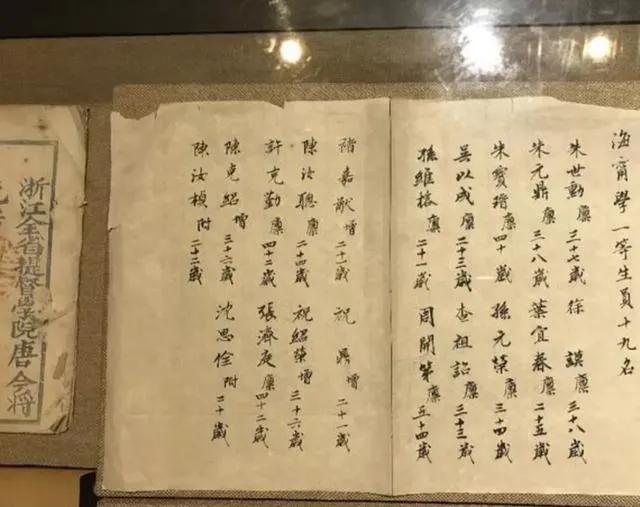 海甯學一等生員十九名
朱世勳 廪 三十七歲 徐謨 廪 三十八歲
朱元鼎 廪 三十八歲 葉宜春 廪 二十五歲
朱寶瑨 廪 四十歲 孫元榮 廪 三十四歲
吳以成 廪 二十三歲 查祖詒 廪 三十三歲
孫維榕 廪 二十一歲 周開第 廪 五十四歲
褚嘉猷 增 二十一歲 祝鼎 增 二十一歲
陳汝聰 廪 二十四歲 祝紹棻 增 三十六歲
許克勤 廪 四十二歲 張濟庚 廪 四十二歲
陳克紹 增 三十六歲 沈思佺 附 二十歲
陳汝楨 附 二十二歲
浙江全省提督學院唐今將